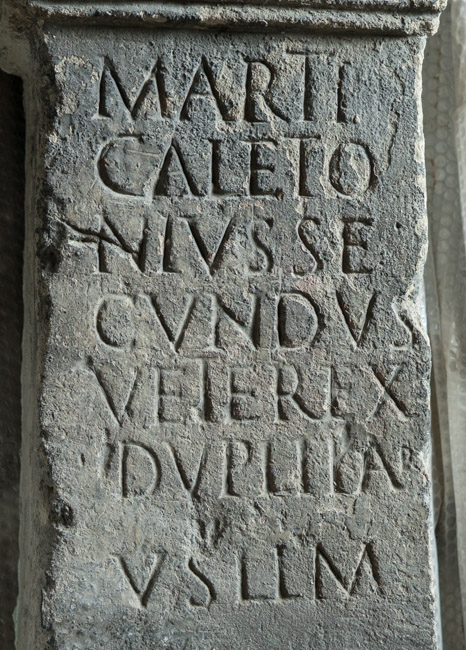 MARTI
CALETO
NIVS SE
CVNDVS
VETER EX
DVPLIKA
VSLLM